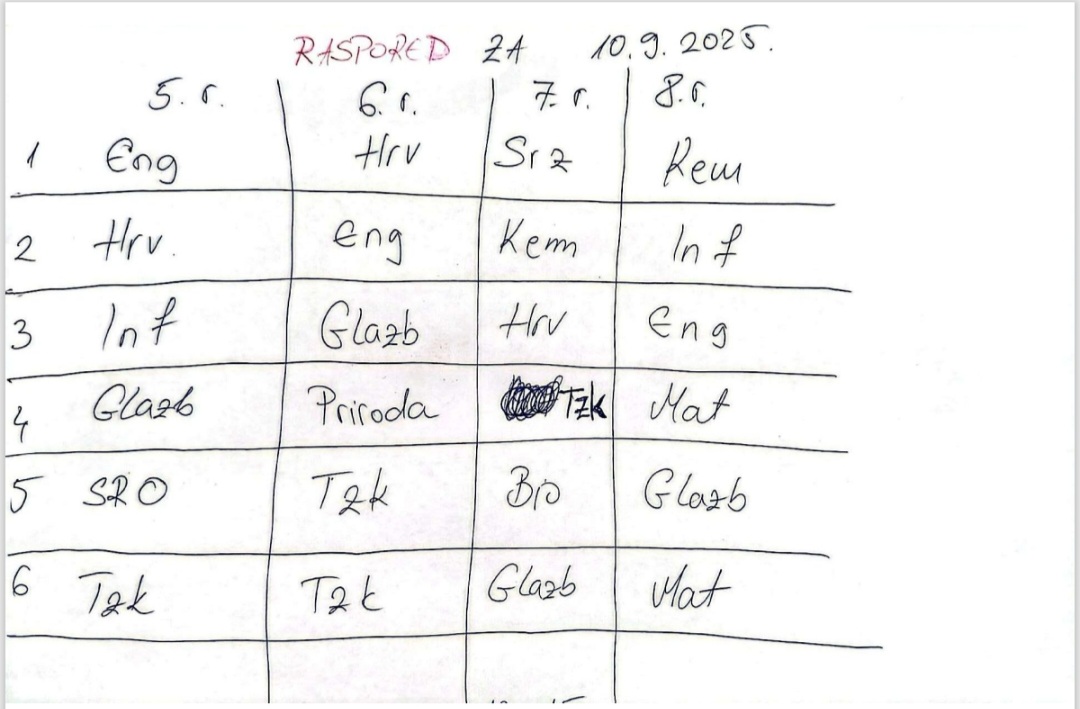 RASPORED ZA 10.9.2025.
5. r. 6. r. 7. r. 8. r.
1 Eng Hrv Srz Kem
2 Hrv. Eng Kem Inf
3 Inf Glazb Hrv Eng
4 Glazb Priroda Tzk Mat
5 SRO Tzk Bio Glazb
6 Tzk Tzk Glazb Mat